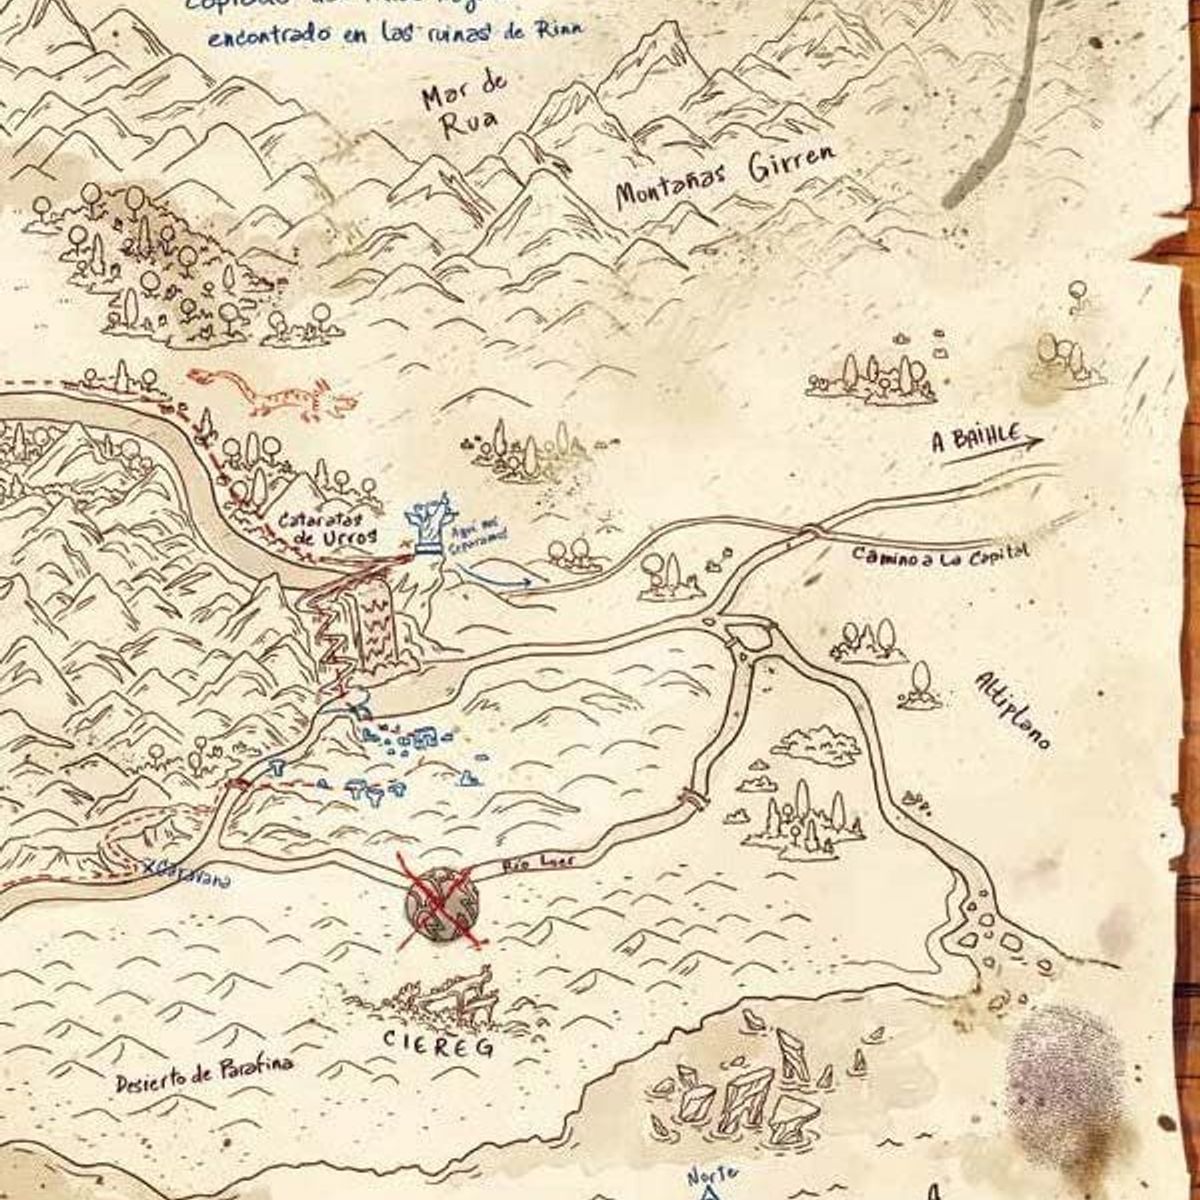 encontrado en las ruinas de Rinn
Mar de
Rua
Montañas Girren
A BAIHLE
Cataratas
de Urros
Aquí nos
separamos
Camino a La Capital
Altiplano
Río Luer
X Caravana
CIEREG
Desierto de Parafina
Norte